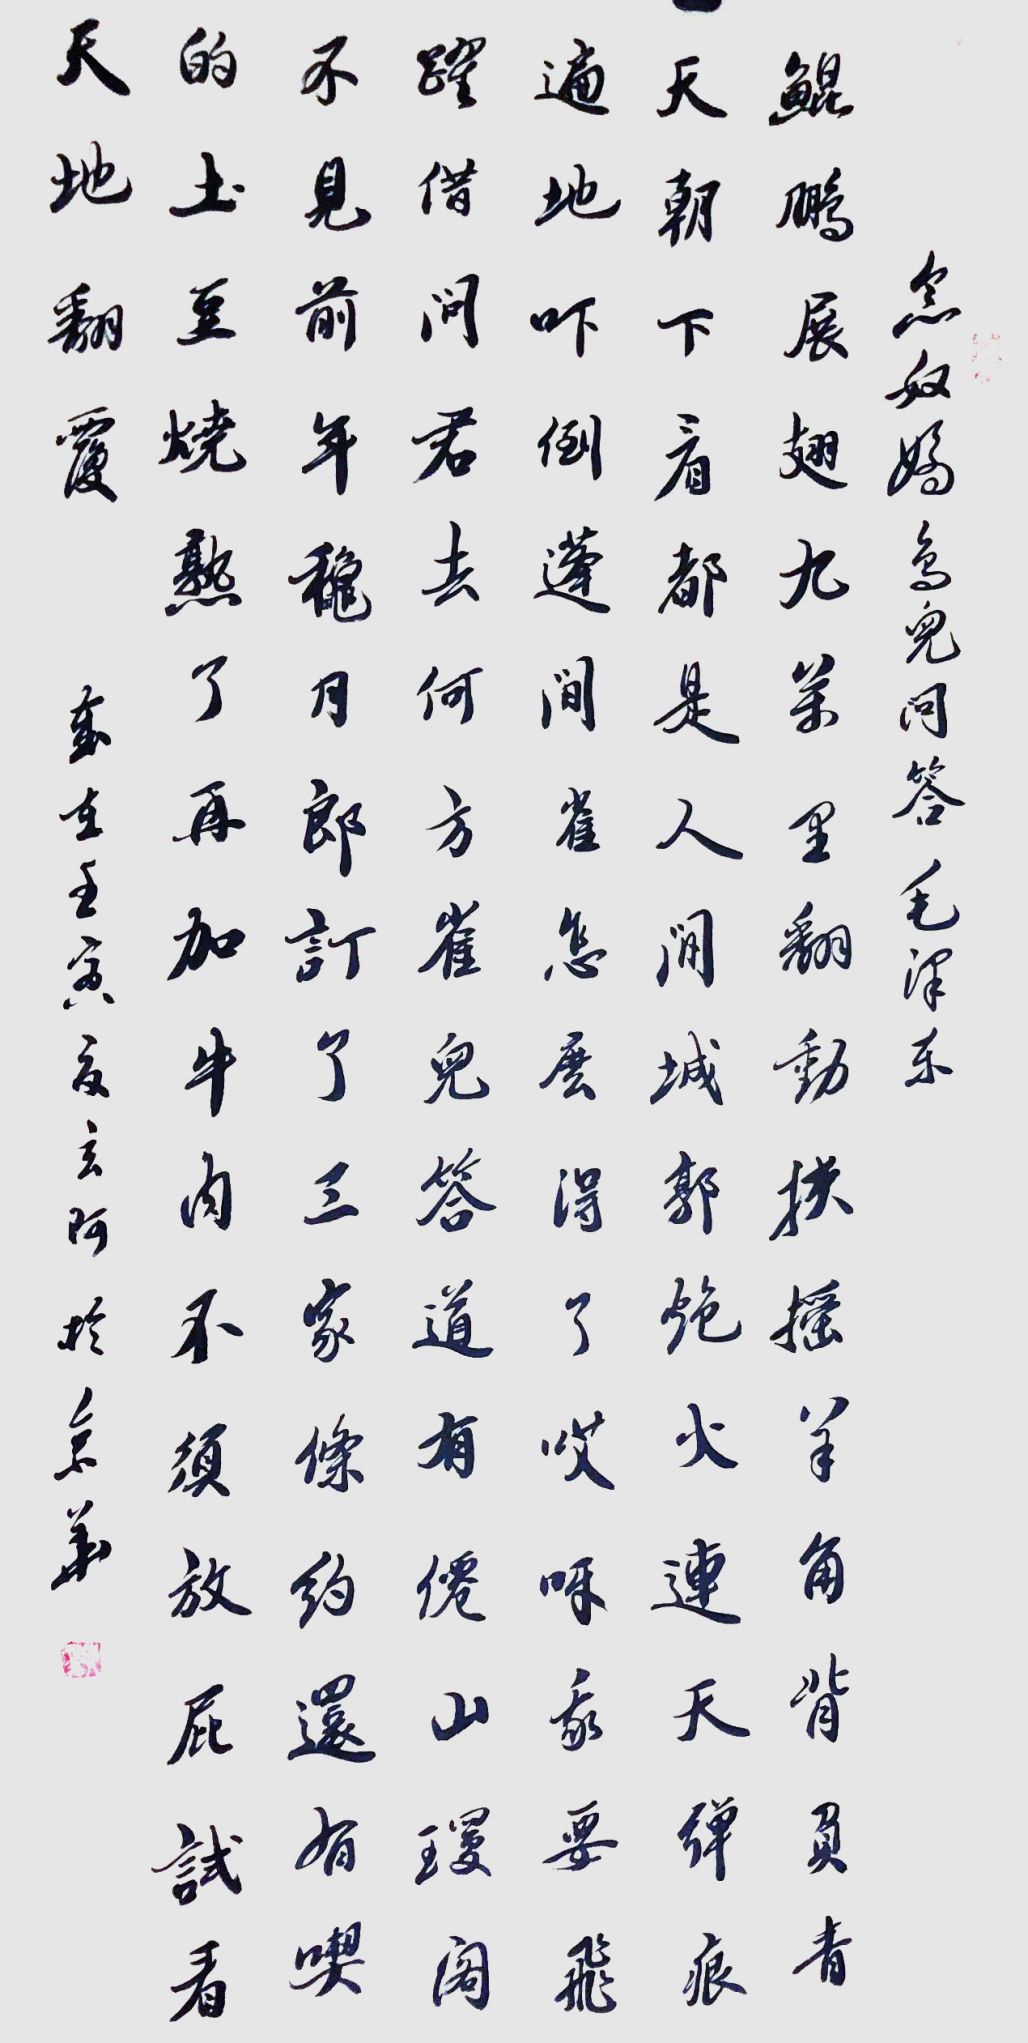 念奴嬌 鳥兒問答 毛澤东
鯤鵬展翅九萬里翻動扶搖羊角背負青
天朝下看都是人間城郭炮火連天彈痕
遍地吓倒蓬間雀怎麽得了哎呀我要飛
躍借問君去何方雀兒答道有僊山瓊閣
不見前年穐月郎訂了三家條約還有喫
的土豆燒熟了再加牛肉不須放屁試看
天地翻覆
歲在壬寅夏玄阿於京華